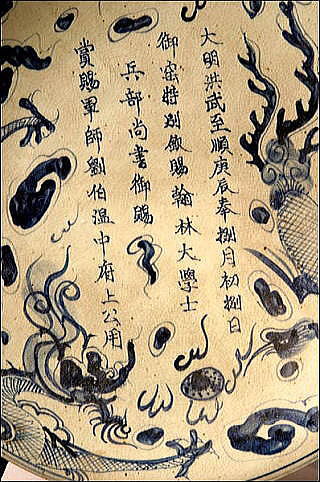 大明洪武至順庚辰奉捌月初捌日
御窑特別賜翰林大學士
兵部尚書御賜
賞賜軍師劉伯溫中府上公用